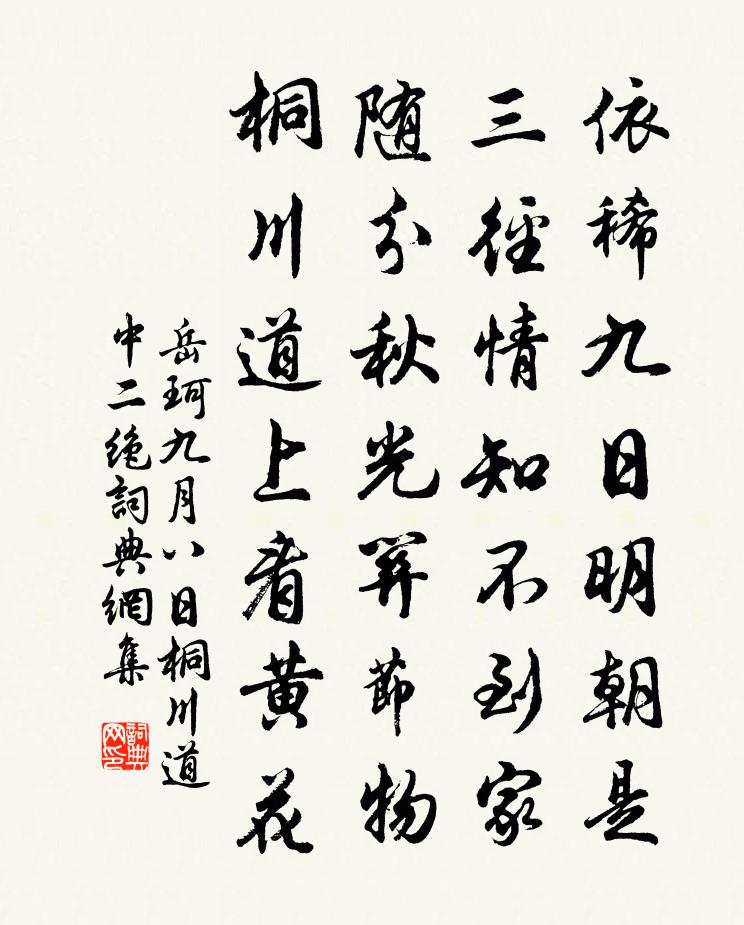 依稀九日明朝是
三徑情知不到家
随分秋光開節物
桐川道上看黄花
岳珂九月八日桐川道
中二绝詞典網集
詞典网印